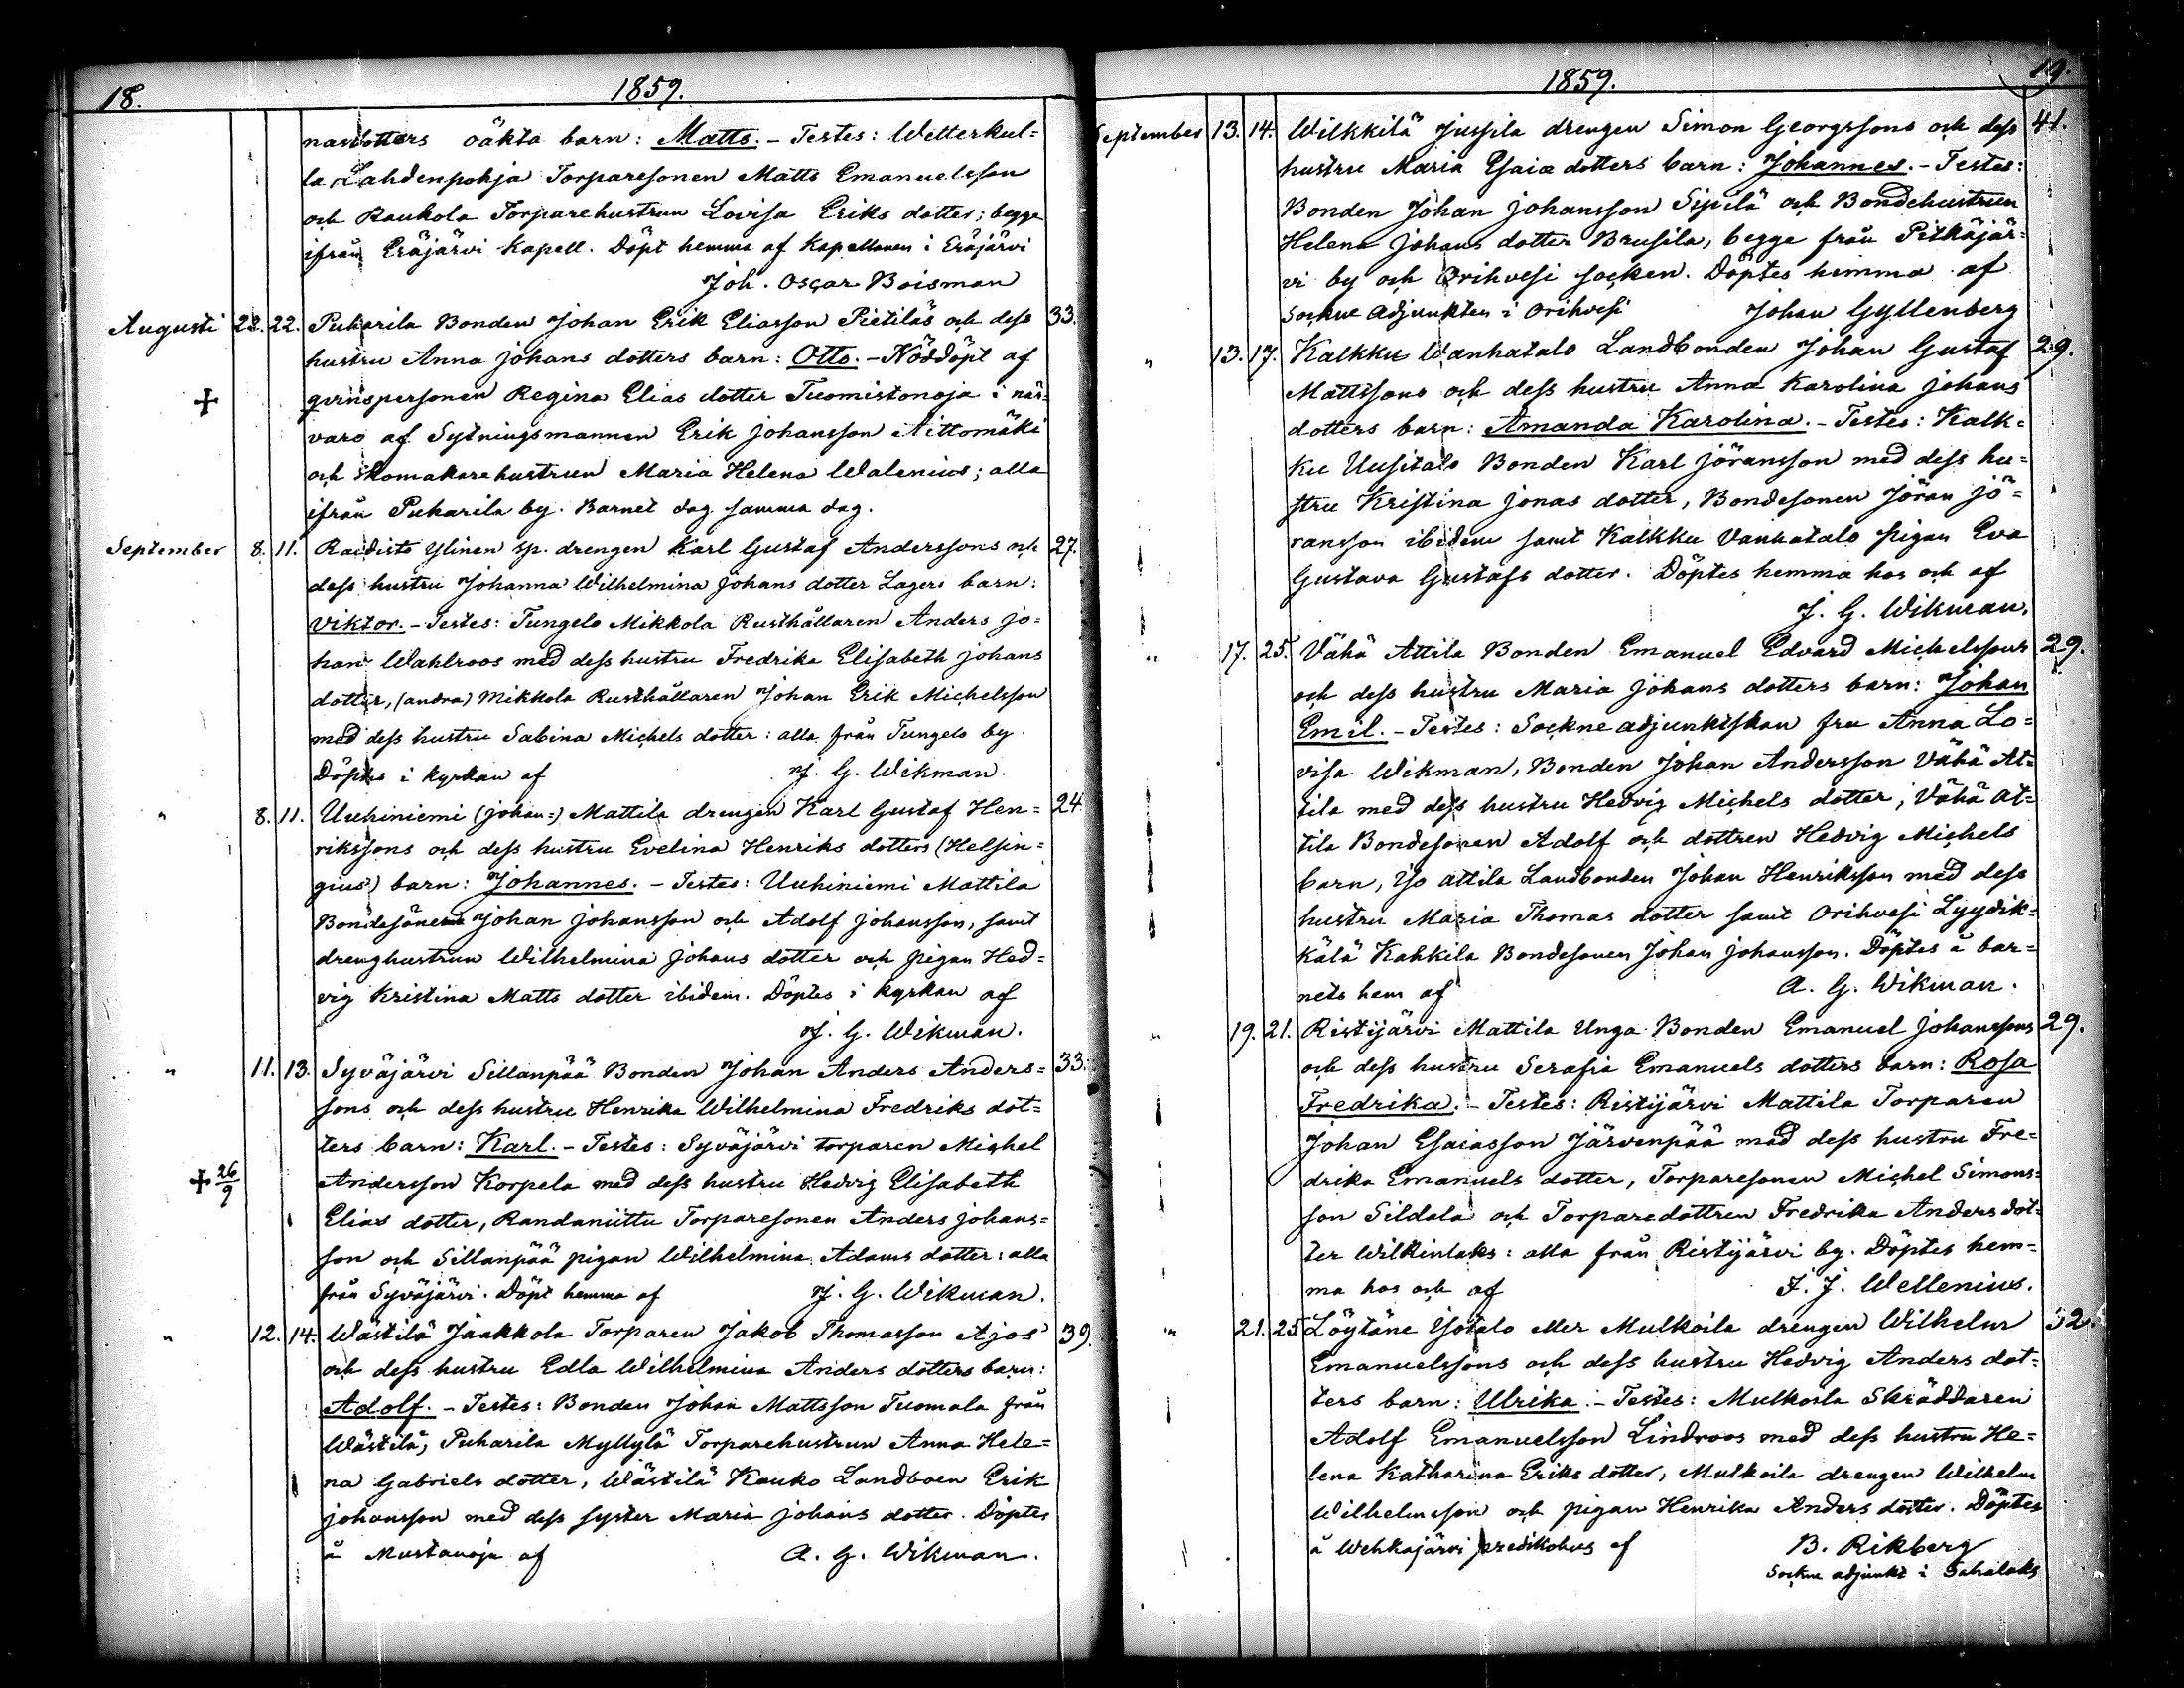 18.
1859.
nasdotters oäkta barn: Matts. - Testes: Wetterkul=
la Lahdenpohja Torparesonen Matts Emanuelsson
och Raukola Torparehustrun Lovisa Eriks dotter; begge
ifrån Eräjärvi Kapell. Döpt hemma af Kapellanen i Eräjärvi
Joh. Oscar Boisman
Augusti 22. 22. Puharila Bonden Johan Erik Eliasson Pietiläs och dess 33.
hustru Anna Johans dotters barn: Otto. - Nöddöpt af
+ qvinspersonen Regina Elias dotter Tuomistonoja i när-
varo af Sytningsmannen Erik Johansson Aittomäki
och Skomakarehustrun Maria Helena Walenius; alla
ifrån Puharila by. Barnet dog samma dag.
September 8. 11. Raudisto Ylinen sp. drengen Karl Gustaf Anderssons och 27.
dess hustru Johanna Wilhelmina Johans dotter Lagers barn:
Viktor. - Testes: Tungelo Mikkola Rusthållaren Anders Jo=
han Wahlroos med dess hustru Fredrika Elisabeth Johans
dotter, (andra) Mikkola Rusthållaren Johan Erik Michelsson
med dess hustru Sabina Michels dotter: alla från Tungelo by.
Döptes i kyrkan af J. G. Wikman.
" 8. 11. Uuhiniemi (Johan=) Mattila drengen Karl Gustaf Hen= 24.
rikssons och dess hustru Evelina Henriks dotters (Helsin=
gius) barn: Johannes. - Testes: Uuhiniemi Mattila
Bondesönerna Johan Johansson och Adolf Johansson, samt
drenghustrun Wilhelmina Johans dotter och pigan Hed=
vig Kristina Matts dotter ibidem. Döptes i kyrkan af
J. G. Wikman.
" 11. 13. Syväjärvi Sillanpää Bonden Johan Anders Anders= 33.
sons och dess hustru Henrika Wilhelmina Fredriks dot=
ters barn: Karl. - Testes: Syväjärvi torparen Michel
+ 26/9 Andersson Korpela med dess hustru Hedvig Elisabeth
Elias dotter, Randaniittu Torparesonen Anders Johans=
son och Sillanpää pigan Wilhelmina Adams dotter: alla
från Syväjärvi. Döpt hemma af J. G. Wikman.
" 12. 14. Wästilä Jaakkola Torparen Jakob Thomasson Ajos 39.
och dess hustru Edla Wilhelmina Anders dotters barn:
Adolf. - Testes: Bonden Johan Mattsson Tuomala från
Wästilä, Puharila Myllylä Torparehustrun Anna Hele=
na Gabriels dotter, Wästilä Kauko Landboen Erik
Johansson med dess syster Maria Johans dotter. Döptes
å Mustanoja af A. G. Wikman.
1859.
19.
September 13. 14. Wilkkilä Jussila drengen Simon Georgssons och dess 41.
hustru Maria Esaiæ dotters barn: Johannes. - Testes:
Bonden Johan Johansson Sipilä och Bondehustrun
Helena Johans dotter Brusila, begge från Pitkäjär=
vi by och Orihvesi socken. Döptes hemma af
Sockne Adjunkten i Orihvesi Johan Gyllenberg
" 13. 17. Kalkku Wanhatalo Landbonden Johan Gustaf 29.
Mattssons och dess hustru Anna Karolina Johans
dotters barn: Amanda Karolina. - Testes: Kalk=
ku Uusitalo Bonden Karl Jöransson med dess hu=
stru Kristina Jonas dotter, Bondesonen Jöran Jö=
ransson ibidem samt Kalkku Vanhatalo pigan Eva
Gustava Gustafs dotter. Döptes hemma hos och af
J. G. Wikman.
" 17. 25. Vähä Attila Bonden Emanuel Edvard Michelssons 29.
och dess hustru Maria Johans dotters barn: Johan
Emil. - Testes: Sockneadjunktskan fru Anna Lo=
visa Wikman, Bonden Johan Andersson Vähä At=
tila med dess hustru Hedvig Michels dotter, Vähä At=
tila Bondesonen Adolf och dottren Hedvig Michels
barn, Iso Attila Landbonden Johan Henriksson med dess
hustru Maria Thomas dotter samt Orihvesi Lyydik=
kälä Kakkila Bondesonen Johan Johansson. Döptes å bar=
nets hem af A. G. Wikman.
" 19. 21. Ristijärvi Mattila Unga Bonden Emanuel Johanssons 29.
och dess hustru Serafia Emanuels dotters barn: Rosa
Fredrika. - Testes: Ristijärvi Mattila Torparen
Johan Esaiasson Järvenpää med dess hustru Fre=
drika Emanuels dotter, Torparesonen Michel Simons=
son Sildala och Torparedottren Fredrika Anders dot=
ter Wilkinlaks: alla från Ristijärvi by. Döptes hem=
ma hos och af F. J. Wellenius.
" 21. 25. Löytäne Ysotalo eller Mulkoila drengen Wilhelm 32.
Emanuelssons och dess hustru Hedvig Anders dot=
ters barn: Ulrika. - Testes: Mulkoila Skräddaren
Adolf Emanuelsson Lindroos med dess hustru He=
lena Katharina Eriks dotter, Mulkoila drengen Wilhelm
Wilhelmsson och pigan Henrika Anders dotter. Döptes
å Wehkajärvi predikohus af B. Rikberg
Sockne adjunkt i Sahalaks